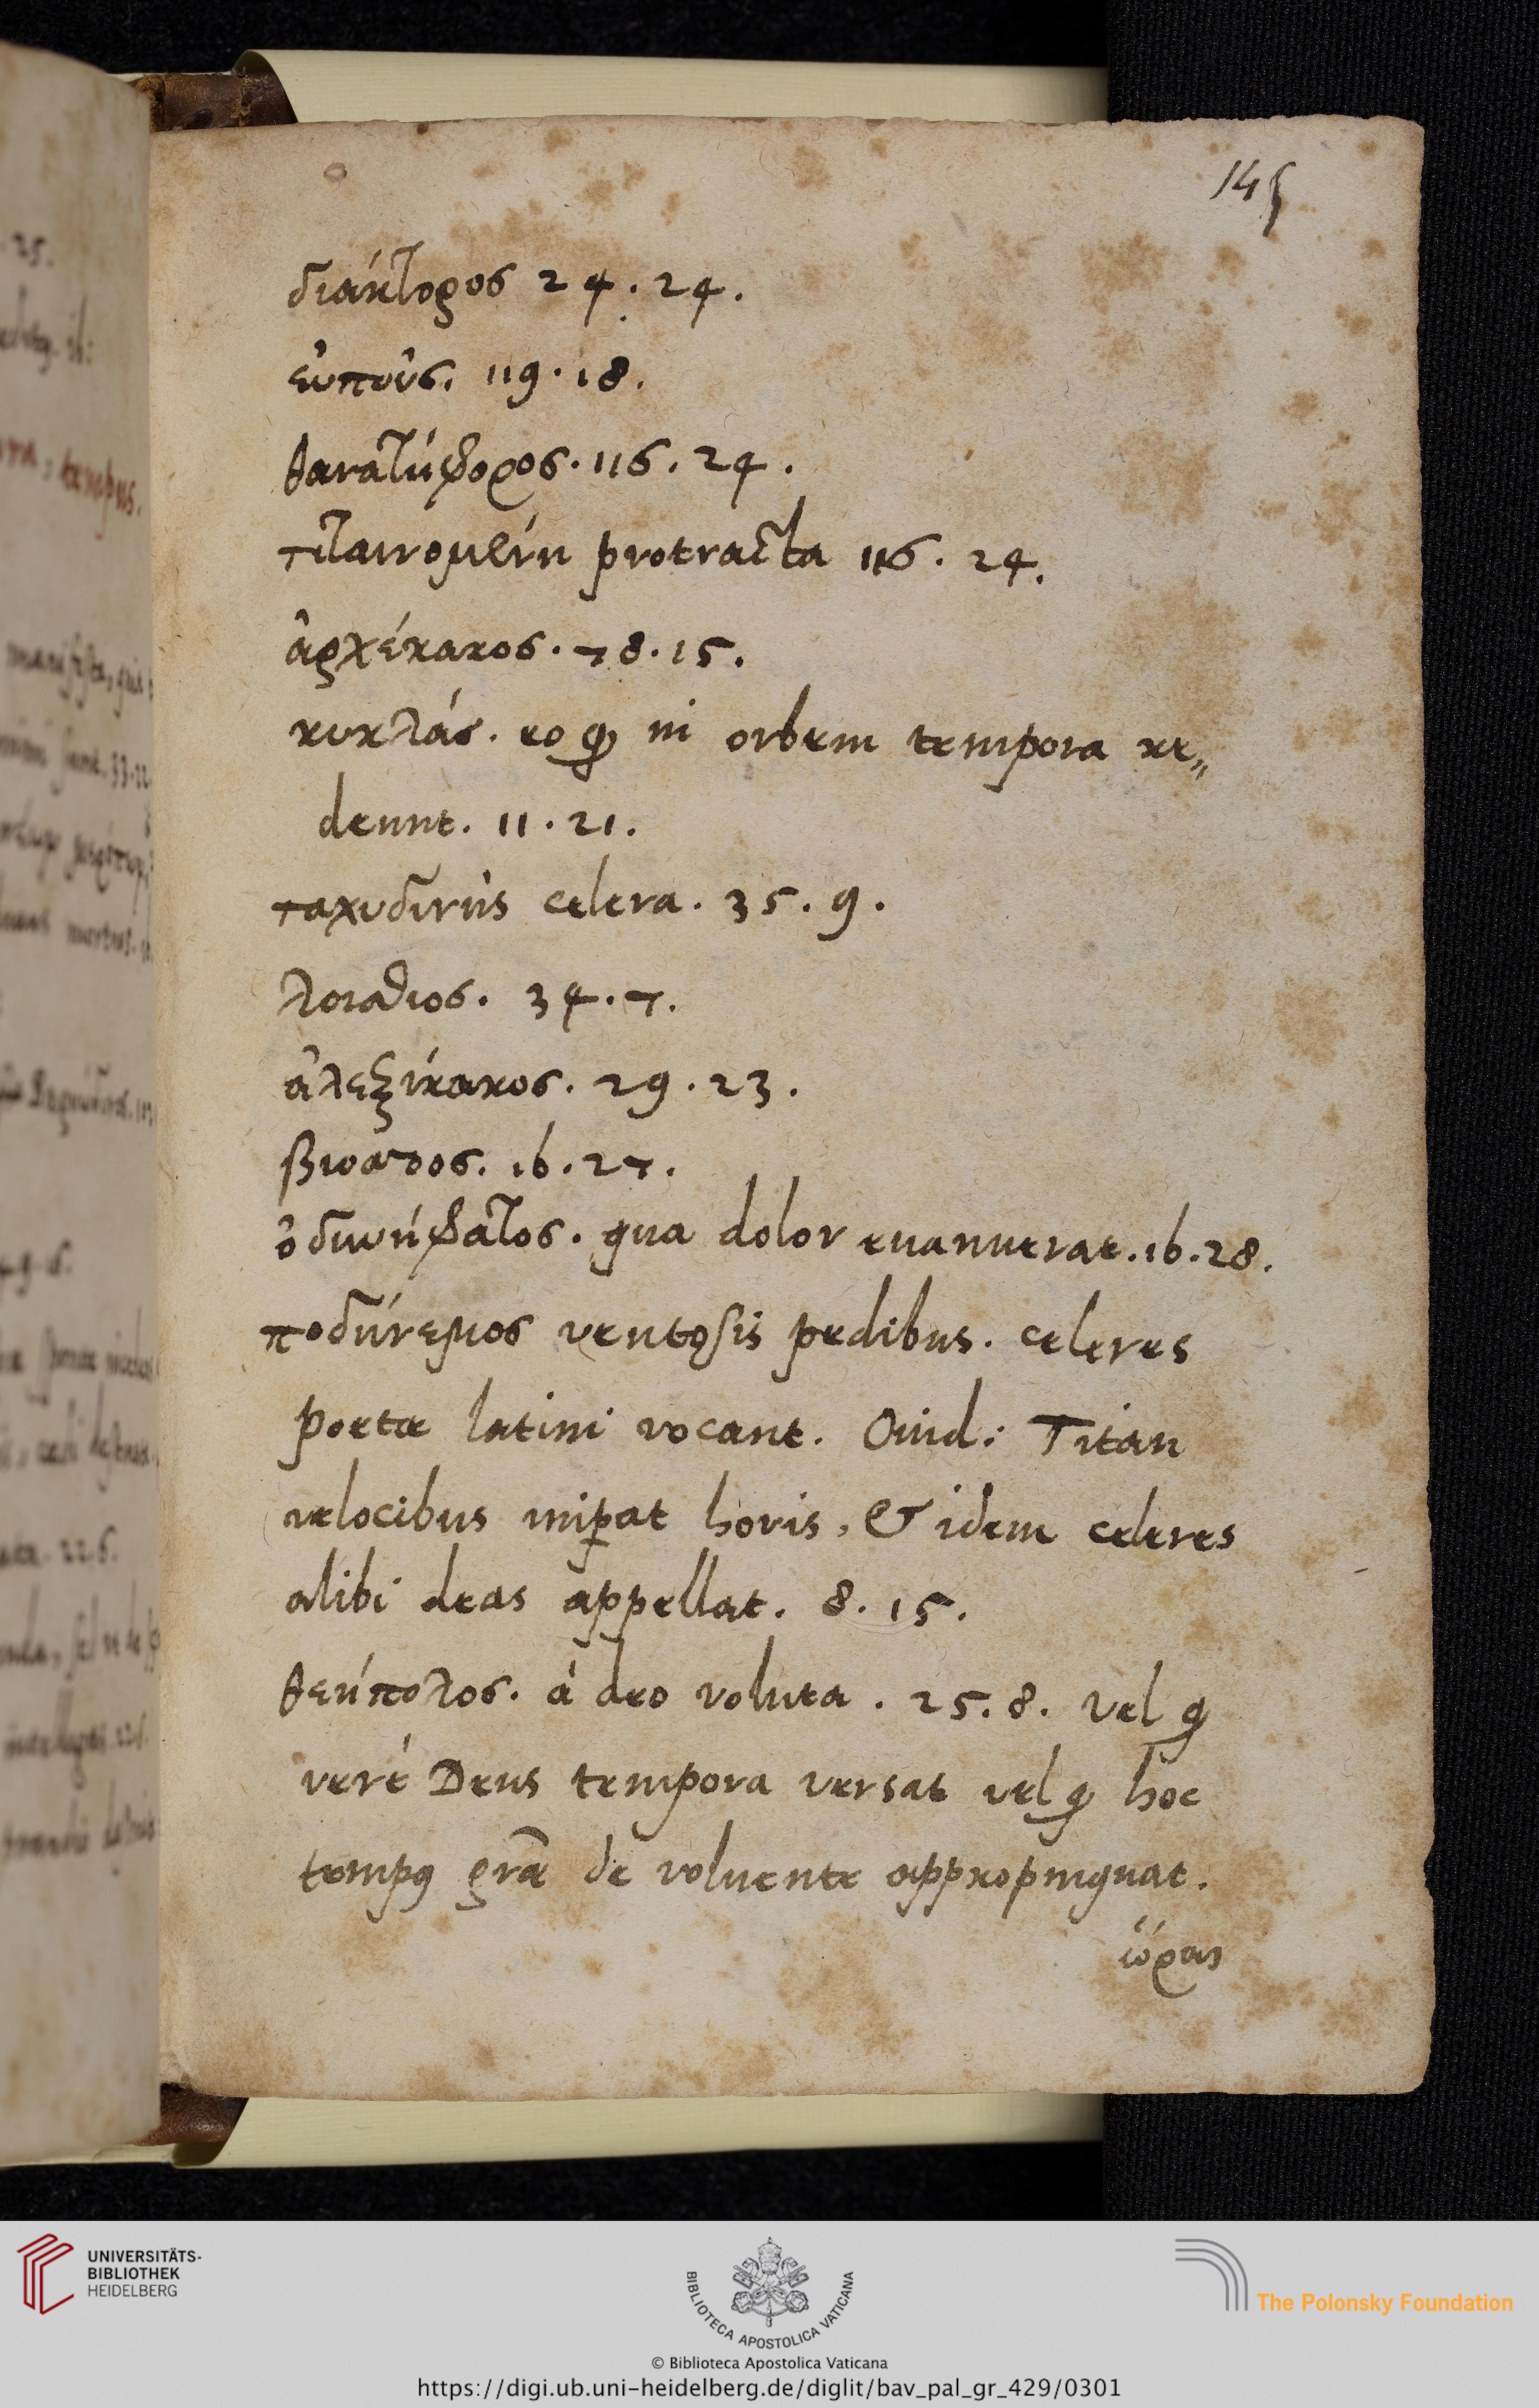 145
διάκτορος 24. 24.
εὐποὺς. 119. 18.
θανατήφορος. 116. 24.
τιταινομένη protracta 116. 24.
ἀρχέκακος. 78. 15.
κυκλάς. eo ꝙ in orbem tempora re„
deunt. 11. 21.
ταχυδινὴς celera. 35. 9.
λοισθιος. 34. 7.
ἀλεξίκακος. 29. 23.
βιοσσόος. ib. 27.
ὀδυνήφατος. qua dolor euanuerat. ib. 28.
ποδήνεμος ventosis pedibus. celeres
poetæ latini vocant. Ouid: Titan
velocibus imꝑat horis, & idem celeres
alibi deas appellat. 8. 15.
θεήπολος. á deo voluta. 25. 8. vel ꝙ
veré Deus tempora versat vel ꝙ hoc
tempꝰ de voluente appropinquat.
ὥραι
25.
tempus.
UNIVERSITÄTS-
BIBLIOTHEK
HEIDELBERG
BIBLIOTECA APOSTOLICA VATICANA
The Polonsky Foundation
© Biblioteca Apostolica Vaticana
https://digi.ub.uni-heidelberg.de/diglit/bav_pal_gr_429/0301